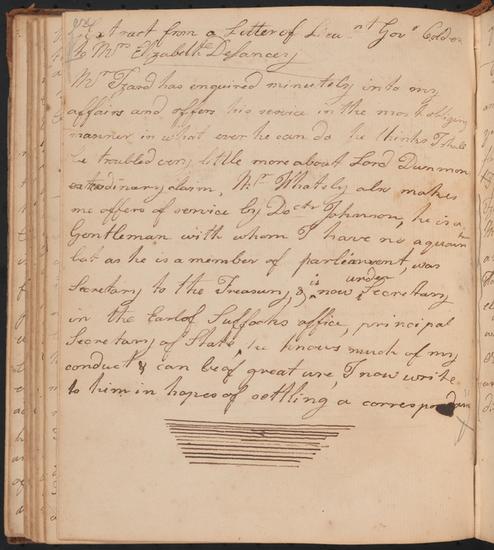 Extract from a Letter of Lieu.nt Gov.r Colden
to Mrs Elizabeth DeLancey
Mr Izard has enquired minutely into my
affairs and offers his service in the most obliging
manner in what ever he can do he thinks I shall
be troubled very little more about Lord Dunmore
extraordinary claim, Mr. Whately also makes
me offers of service by Doctr Johnson, he is a
Gentleman with whom I have no aquain
but as he is a member of parliament, was
Secretary to the Treasury, & is now under Secretary
in the Earl of Suffocks office, principal
Secretary of State, he knows much of my
conduct & can be of great use, I now write
to him in hopes of settling a correspondance